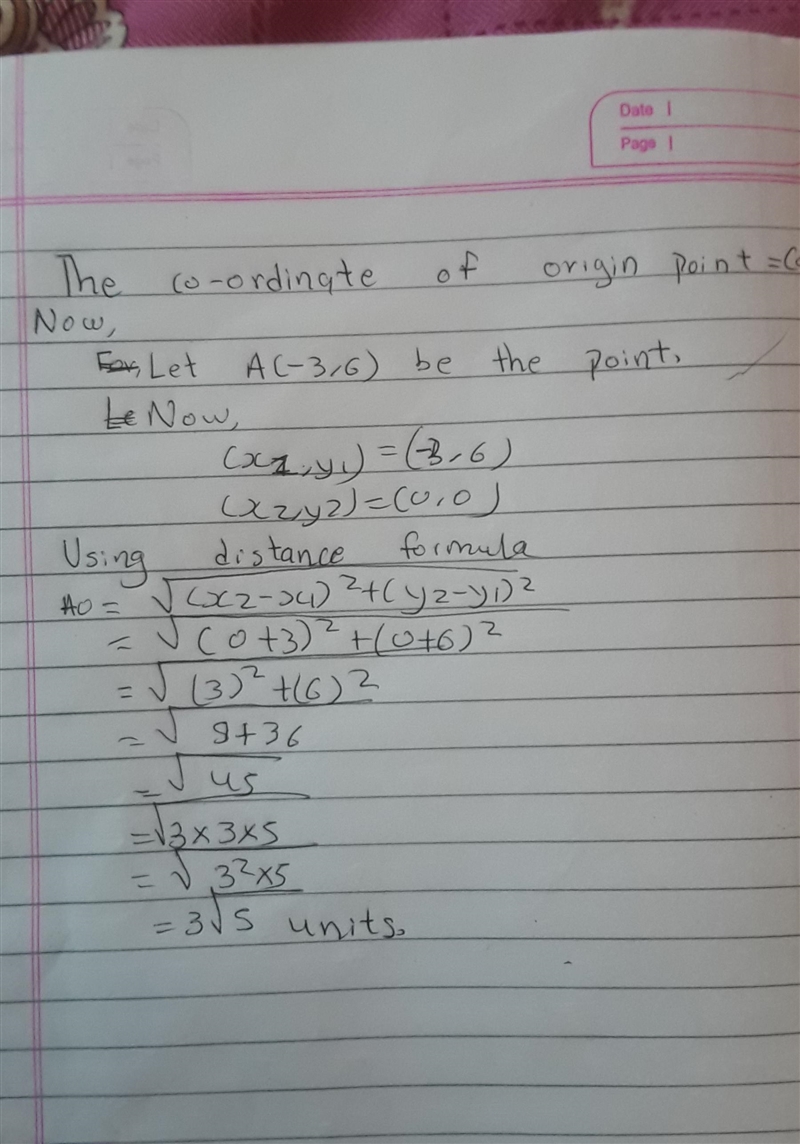 Date
Page
The co-ordinate of origin point =(
Now,
Let A(-3,6) be the point.
Now,
(x1,y1)=(-3,6)
(x2,y2)=(0,0)
Using distance formula
AO = √(x2-x1)²+(y2-y1)²
= √(0+3)²+(0+6)²
= √(3)²+(6)²
= √9+36
= √45
= √3×3×5
= √3²×5
= 3√5 units.